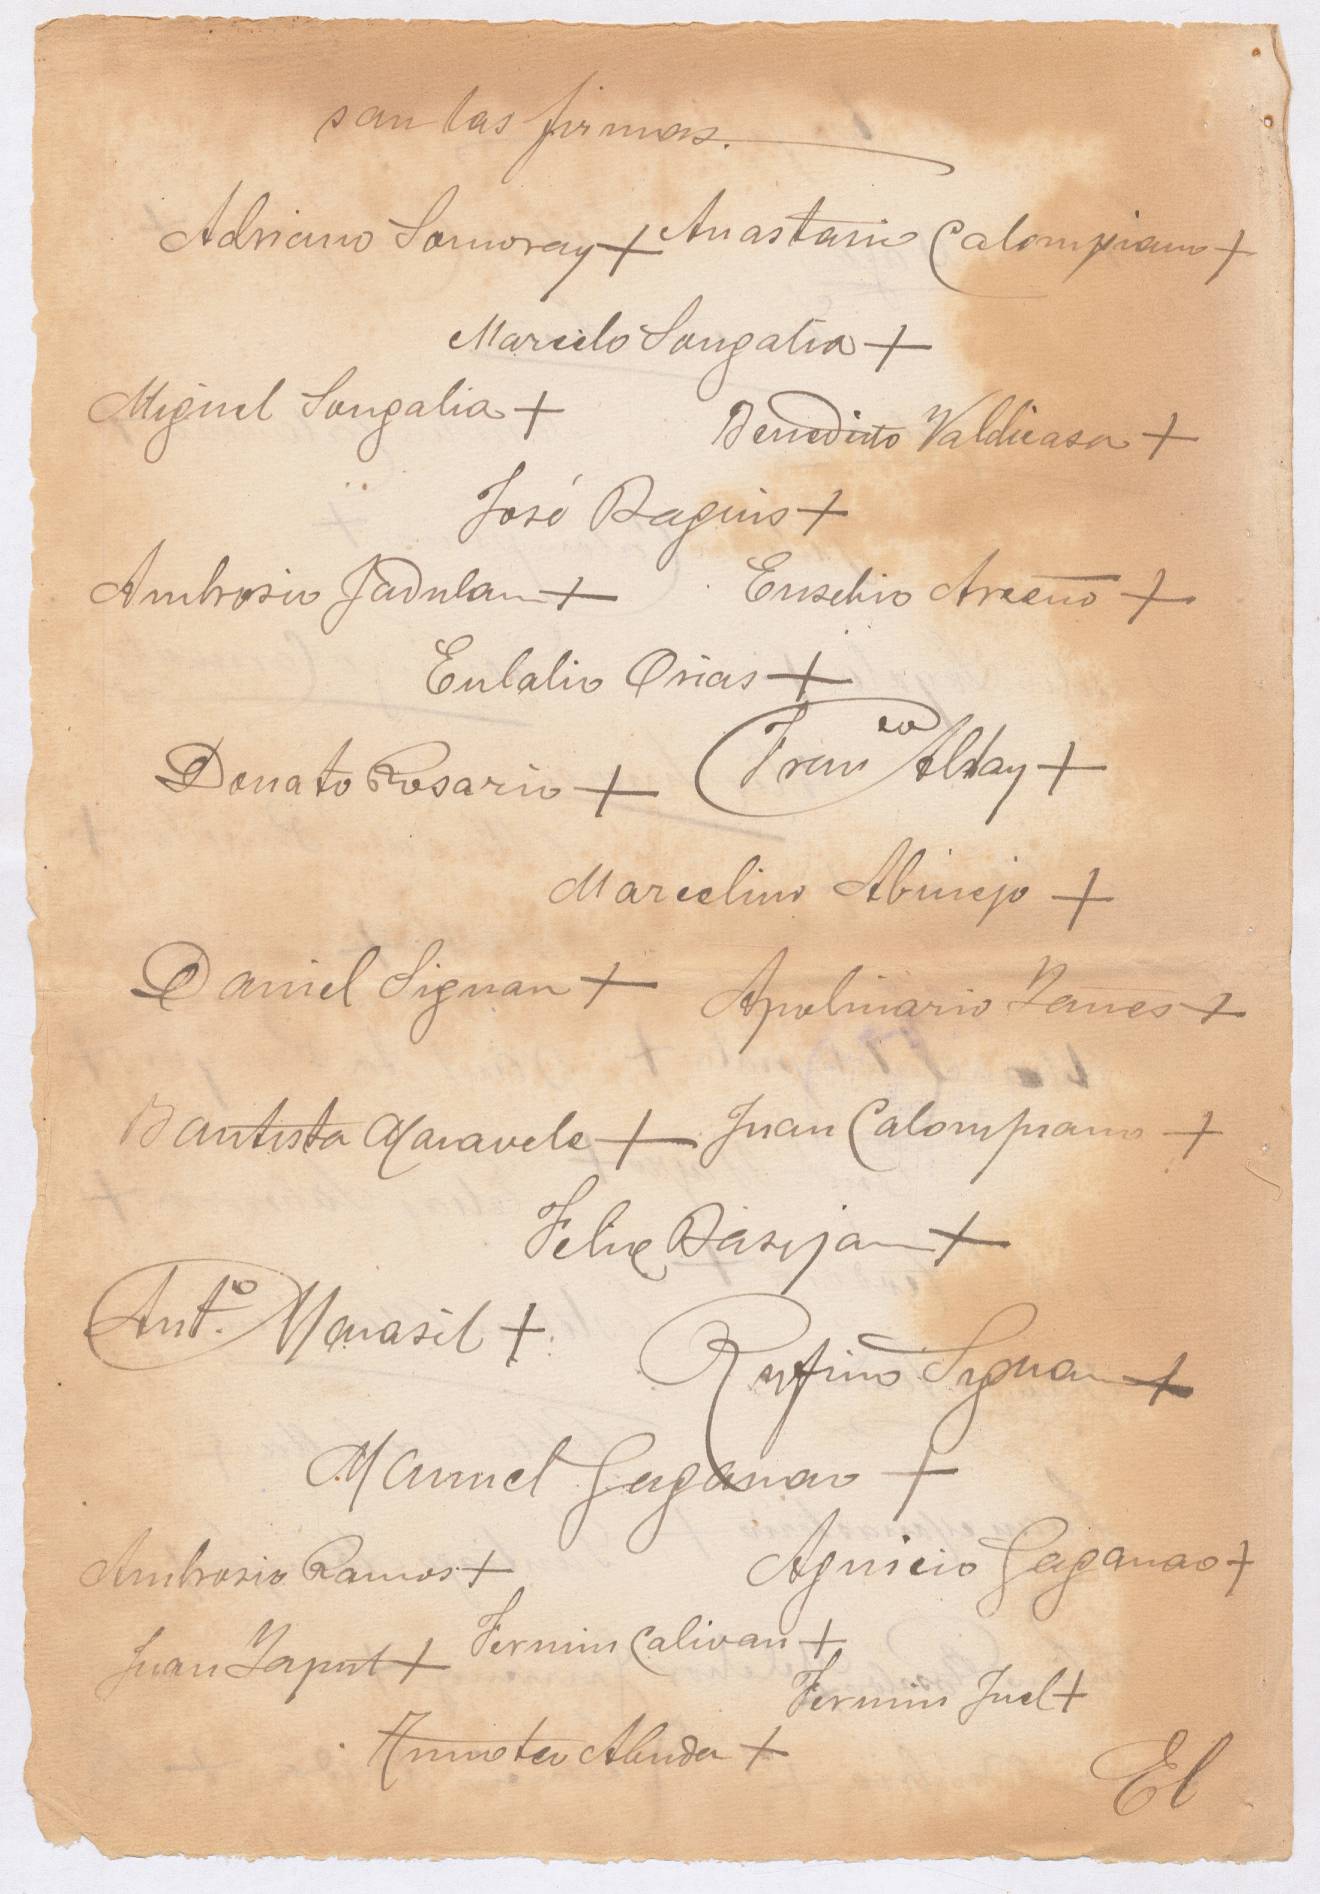 san las firmas.
Adriano Somoray + Anastasio Calompiano +
Marcelo Songalia +
Miguel Songalia +
Benedicto Valdicasa +
José Raguis +
Ambrosio Jadulan + Eusebio Areeno +
Eulalio Orias +
Donato Rosario + Franco Alday +
Marcelino Abinejo +
Daniel Siguan + Apolinario Yanes +
Bautista Maravele + Juan Calompiano +
Felix Basijan +
Anto. Marasil +
Rufino Siguan +
Manuel Gaganao +
Ambrosio Ramos + Agnicio Gaganao +
Juan Japut + Fermin Calivan +
Fermin Juel +
Timoteo Abuda +
El